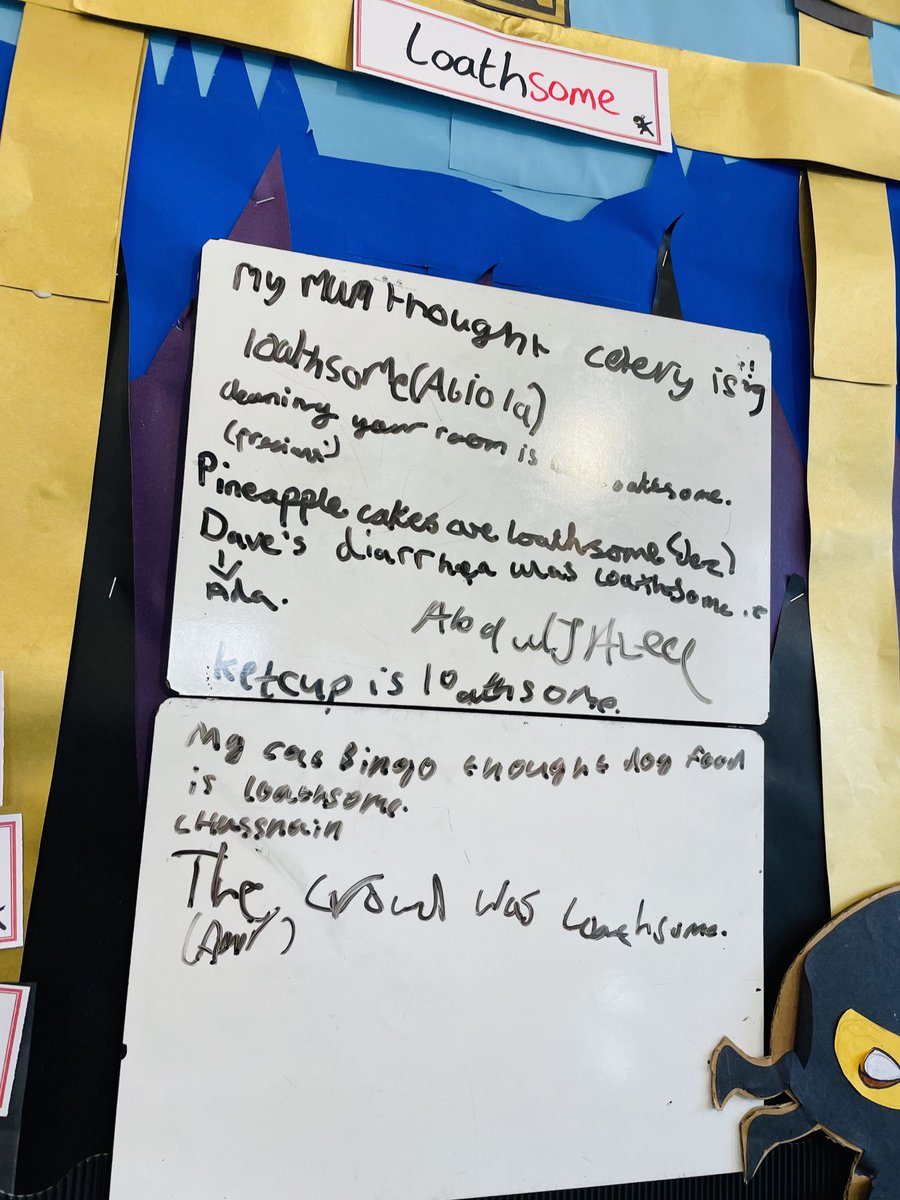 Loathsome
My MUM thought celery is
loathsome (Abiola)
cleaning your room is loathsome.
(precious)
Pineapple cakes are loathsome (Jez)
Dave's diarrhea was loathsome
Ada.
Abdul JALEEL
ketcup is loathsome.
My cat Bingo thought dog food
is loathsome.
Hussnain
The crowd was Loathsome.